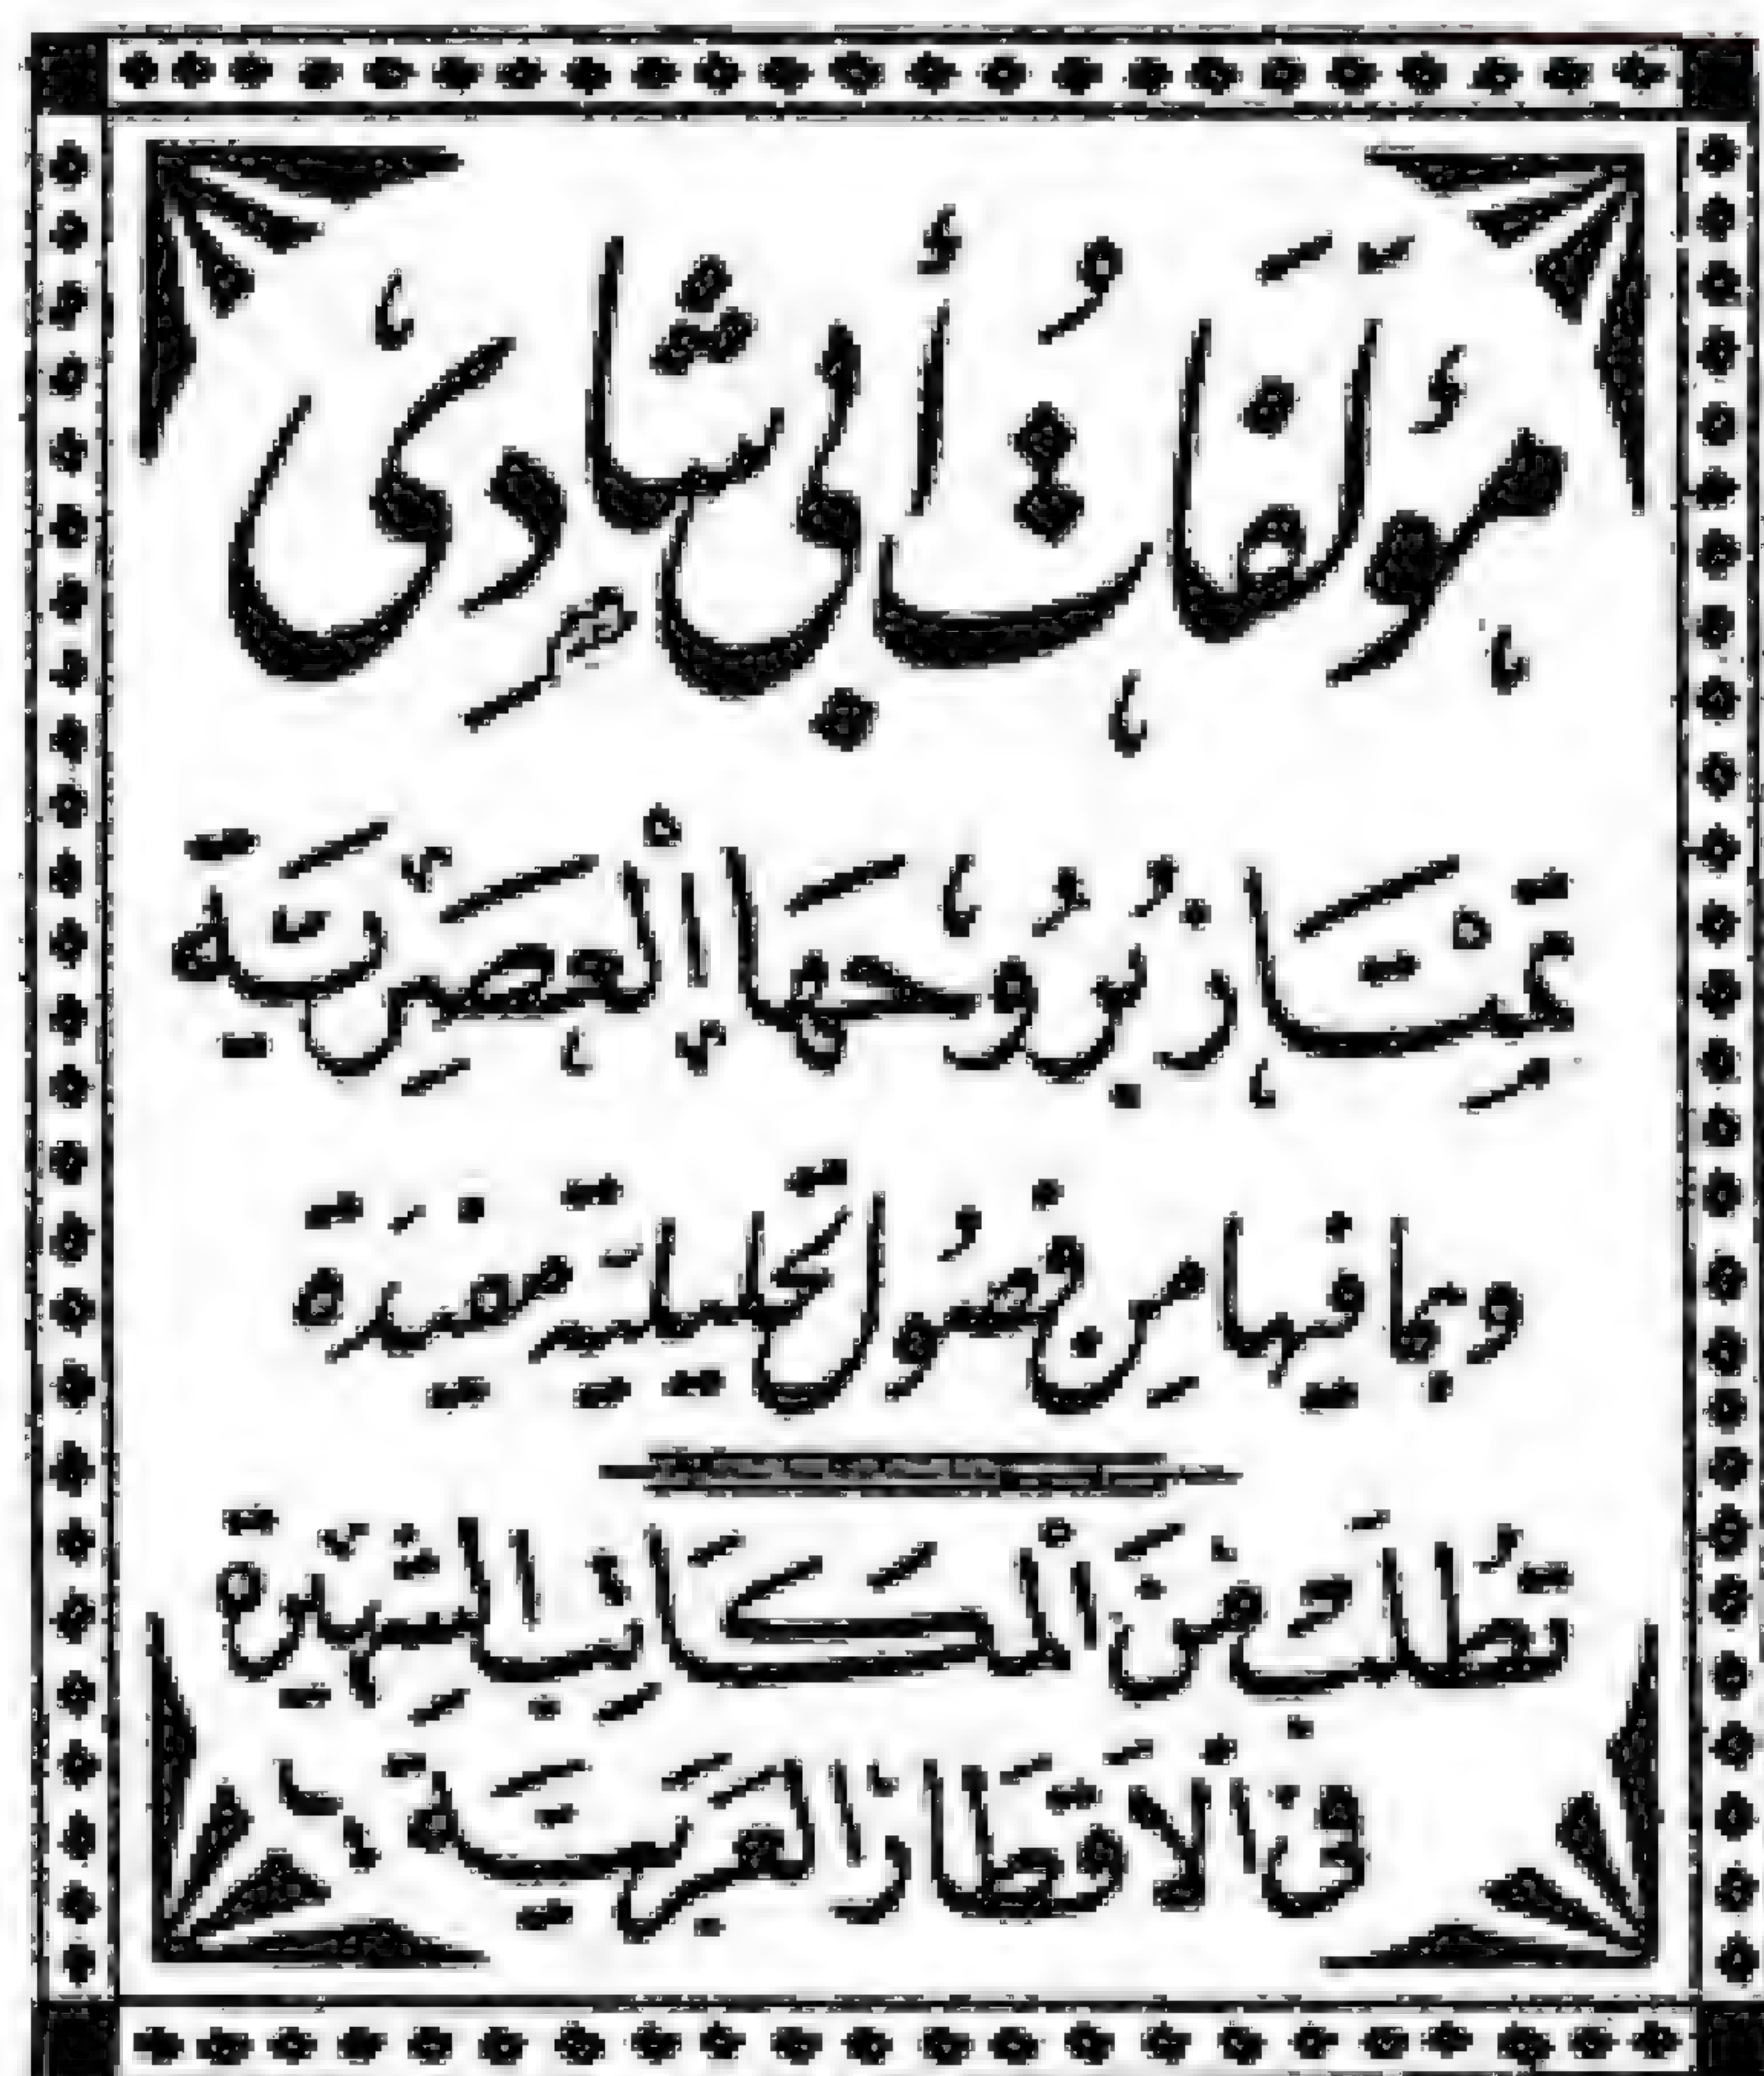 مُؤَلَّفَاتُ أَبِي شَادِي
تَمْتَازُ بُرُوحِهَا الْعَصْرِيَّة
وبما فيها مِن فصُول تحليليّة مفيدَة
تُطلَبُ مِنَ الْمكَاتِبِ الشَّهِيرَة
فى الأقطَار العَرَبيَّة